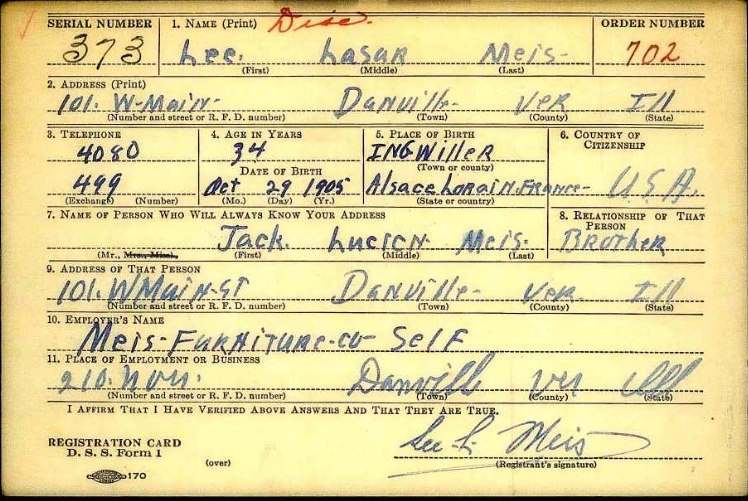 SERIAL NUMBER 1. NAME (Print) Disc. ORDER NUMBER
373 Lee. Lasar Meis- 702
(First) (Middle) (Last)
2. ADDRESS (Print)
101. W-Main- Danville- Ver Ill
(Number and street or R. F. D. number) (Town) (County) (State)
3. TELEPHONE 4. AGE IN YEARS 5. PLACE OF BIRTH 6. COUNTRY OF CITIZENSHIP
4080 34 INGWILLER
DATE OF BIRTH (Town or county)
499 Oct 29 1905 Alsace Lorain. France- U.S.A.
(Exchange) (Number) (Mo.) (Day) (Yr.) (State or country)
7. NAME OF PERSON WHO WILL ALWAYS KNOW YOUR ADDRESS 8. RELATIONSHIP OF THAT PERSON
Jack. Lucien- Meis. Brother
(Mr., Mrs., Miss) (First) (Middle) (Last)
9. ADDRESS OF THAT PERSON
101. W Main-ST Danville- Ver. Ill
(Number and street or R. F. D. number) (Town) (County) (State)
10. EMPLOYER'S NAME
Meis-Furniture-co- Self
11. PLACE OF EMPLOYMENT OR BUSINESS
210. Danville Ver Ill
(Number and street or R. F. D. number) (Town) (County) (State)
I AFFIRM THAT I HAVE VERIFIED ABOVE ANSWERS AND THAT THEY ARE TRUE.
REGISTRATION CARD
D. S. S. Form 1 (over)
Lee L. Meis
(Registrant's signature)
170